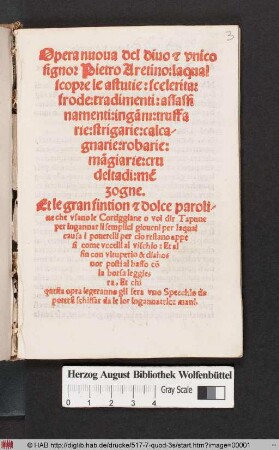 3
Opera nuova del diuo & vnico
signor Pietro Aretino: laqual
scopre le astutie: scelerita:
frode: tradimenti: assassi
namenti: ingāni: truffa
rie: strigarie: calca
gnarie: robarie:
māgiarie: cru
deltadi: mē
zogne.
Et le gran fintion & dolce paroli-
ne che vsano le Cortiggiane o voi dir Tapune
per ingannar li semplici gioueni per laqual
causa i pouerelli per cio restano appe
si come vccelli al vischio: Et al
fin con vituperio & dishο
nor posti al basso cō
la borsa leggie
ra, Et chi
questa opra legeranno gli sera vno Specchio da
potersi schiffar da le lor ingannatrice mani.
Herzog August Bibliothek Wolfenbüttel
Gray Scale
© HAB http://diglib.hab.de/drucke/517-7-quod-3s/start.htm?image=00001